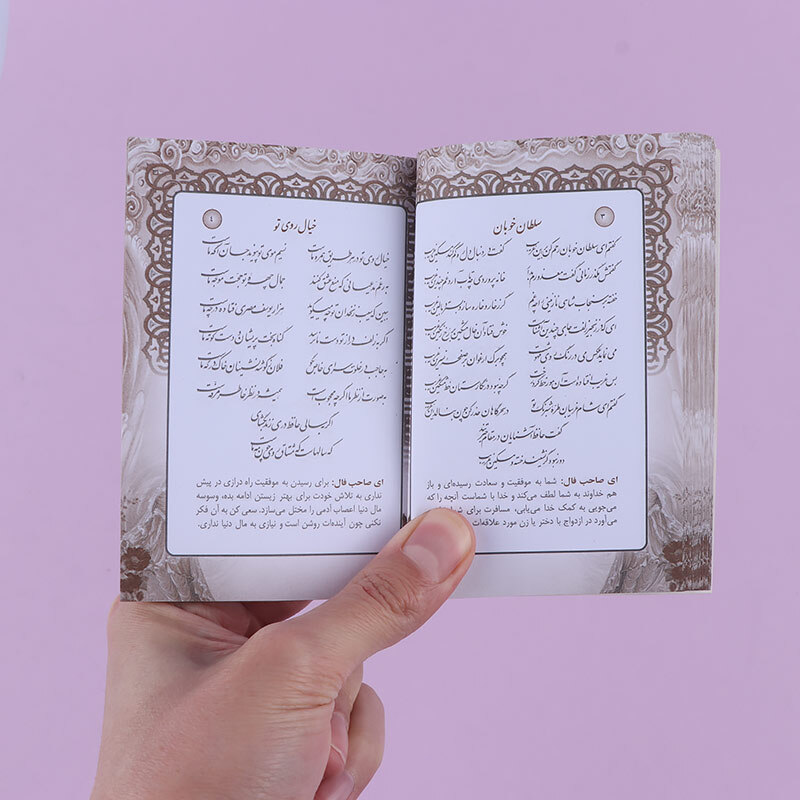 ۳
سلطان خوبان
گفتم ای سلطان خوبان رحم کن بر این غریب
گفت در دنبال دل ره گم کند مسکین غریب
گفتمش مگذر زمانی گفت معذورم بدار
خانه پروردی چه تاب آرد غم چندین غریب
خفته بر سنجاب شاهی نازنینی را چه غم
گر ز خار و خاره سازد بستر و بالین غریب
ای که در زنجیر زلفت جای چندین آشناست
خوش فتاد آن خال مشکین بر رخ رنگین غریب
می نماید عکس می در رنگ روی مهوشت
همچو برگ ارغوان بر صفحه نسرین غریب
بس غریب افتاده است آن مور خط گرد رخت
گرچه نبود در نگارستان خط مشکین غریب
گفتم ای شام غریبان طره شبرنگ تو
در سحرگاهان حذر کن چون بنالد این غریب
گفت حافظ آشنایان در مقام حیرتند
دور نبود گر نشیند خسته و مسکین غریب
ای صاحب فال: شما به موفقیت و سعادت رسیده‌ای و باز
هم خداوند به شما لطف می‌کند و خدا با شماست آنچه را که
می‌جویی به کمک خدا می‌یابی، مسافرت برای
می‌آورد در ازدواج با دختر یا زن مورد علاقه‌ات
۴
خیال روی تو
خیال روی تو در هر طریق همره ماست
نسیم موی تو پیوند جان آگه ماست
به رغم مدعیانی که منع عشق کنند
جمال چهره تو حجت موجه ماست
ببین که سیب زنخدان تو چه می‌گوید
هزار یوسف مصری فتاده در چه ماست
اگر به زلف دراز تو دست ما نرسد
گناه بخت پریشان و دست کوته ماست
به حاجب در خلوت سرای خاص بگو
فلان ز گوشه نشینان خاک درگه ماست
به صورت از نظر ما اگر چه محجوب است
همیشه در نظر خاطر مرفه ماست
اگر به سالی حافظ دری زند بگشای
که سالهاست که مشتاق روی چون مه ماست
ای صاحب فال: برای رسیدن به موفقیت راه درازی در پیش
نداری به تلاش خودت برای بهتر زیستن ادامه بده، وسوسه
مال دنیا اعصاب آدمی را مختل می‌سازد. سعی کن به آن فکر
نکنی چون آینده‌ات روشن است و نیازی به مال دنیا نداری.